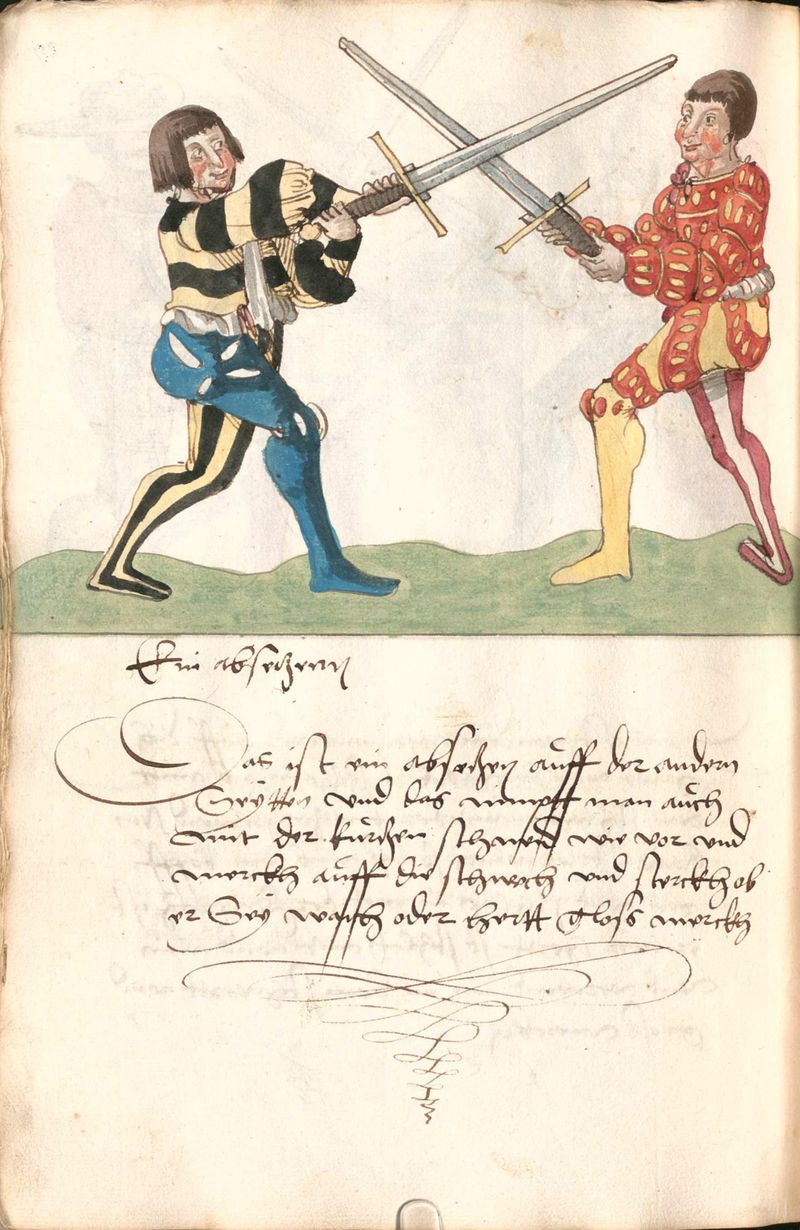 Ein absetzenn
Das ist ein absetzen auff der andern
Seÿtten vnd das nimpt man auch
mit der kurtzen schneid wie vor vnd
merckh auff die schwech vnd sterckh ob
er Seÿ waich oder hertt gloss merckh